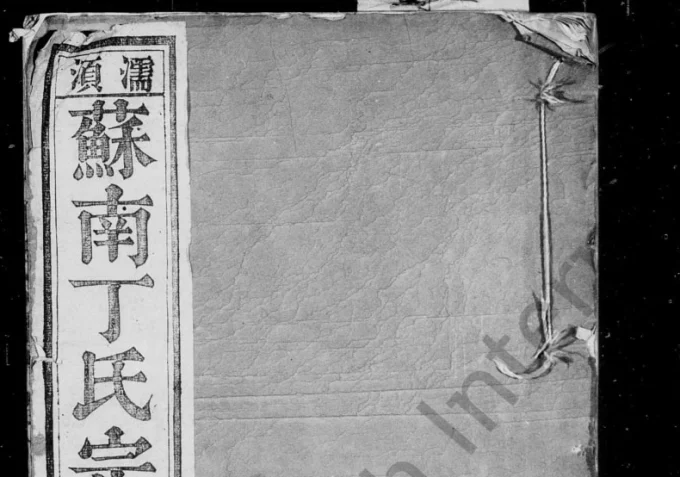 濡須
蘇南丁氏宗
h Intern